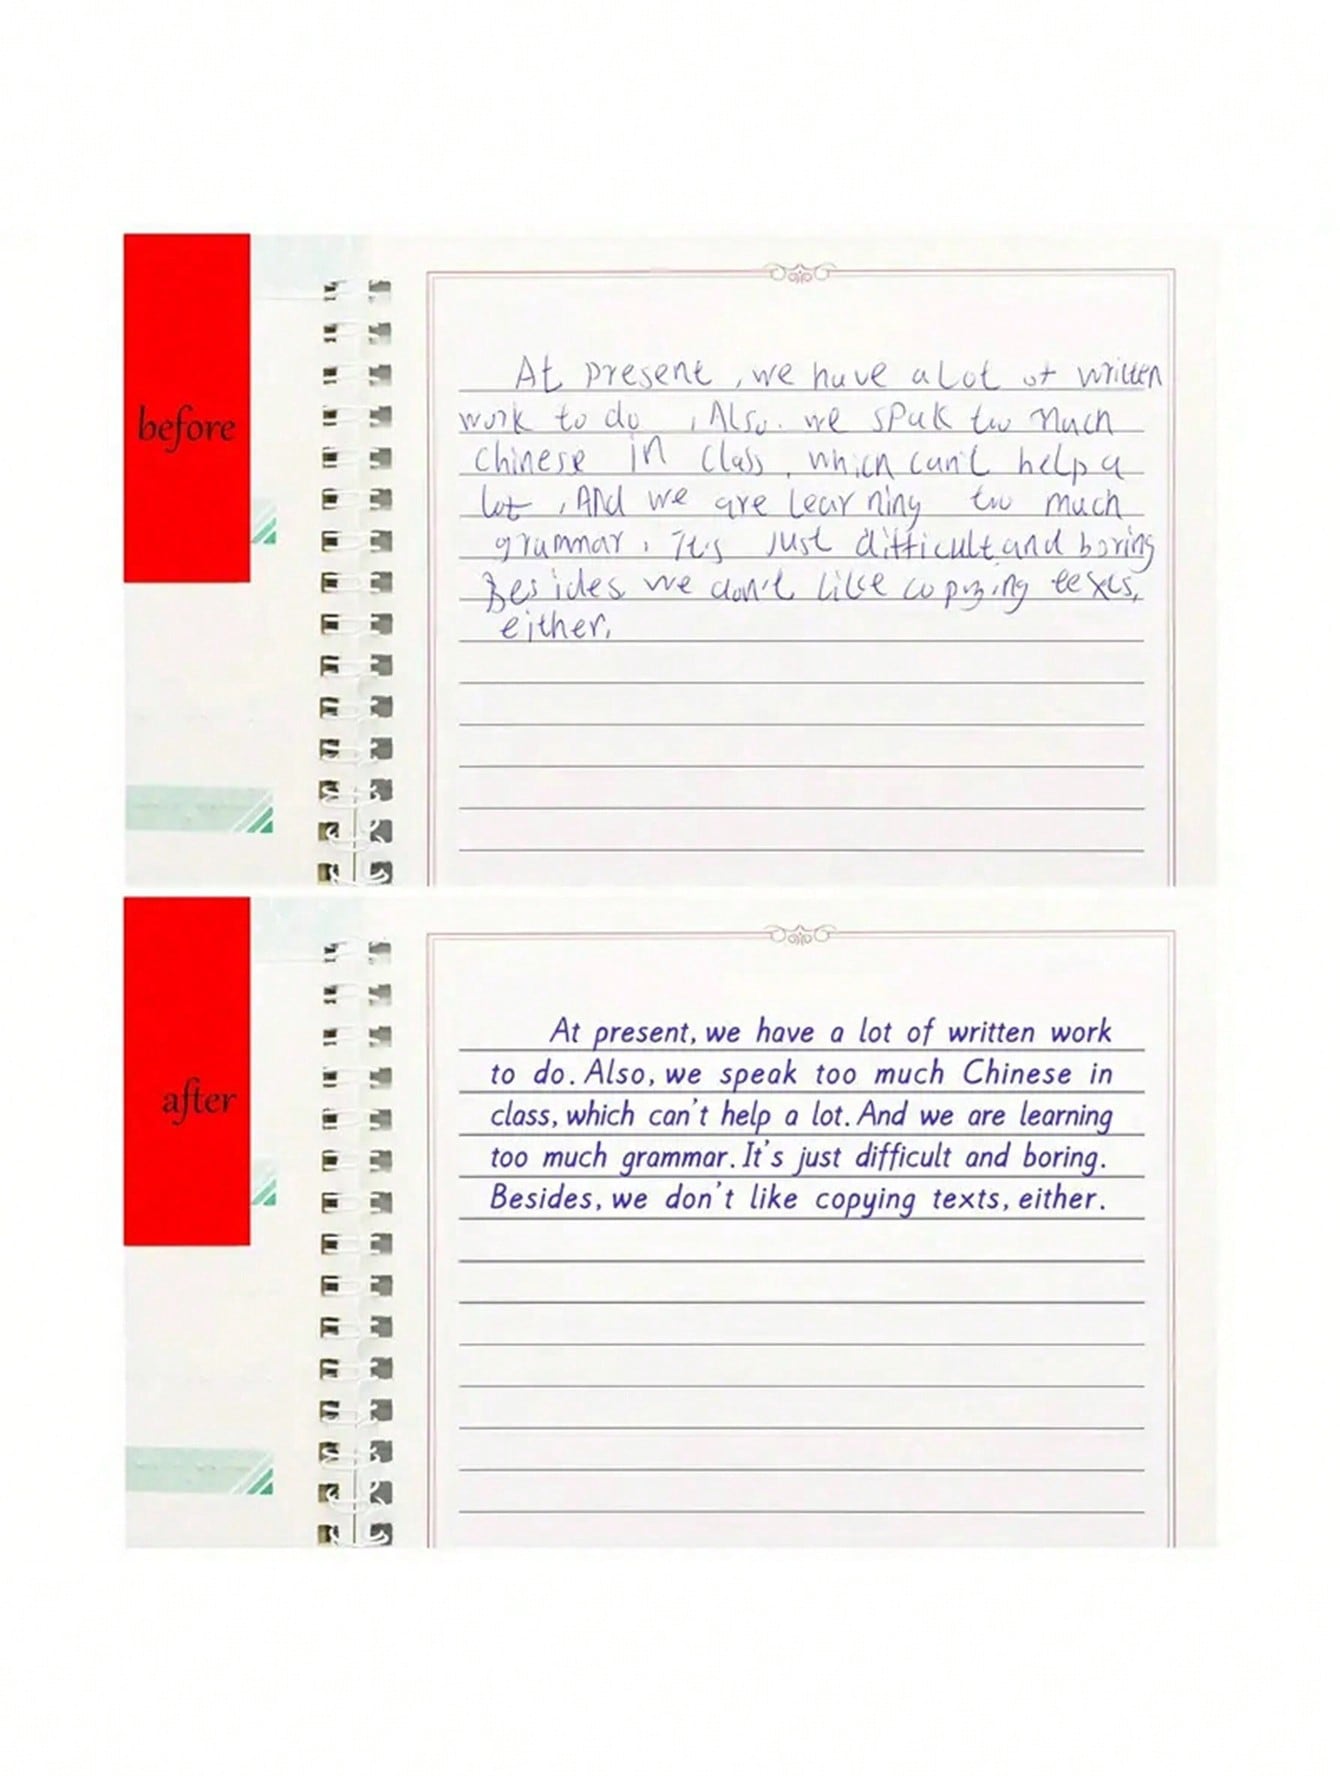 before
At present, we have a lot of written
work to do , Also. we speak too much
chinese in class, which can't help a
lot, And we are learning too much
grammar, It's just difficult and boring
Besides we don't like copying texts,
either,
after
At present, we have a lot of written work
to do. Also, we speak too much Chinese in
class, which can't help a lot. And we are learning
too much grammar. It's just difficult and boring.
Besides, we don't like copying texts, either.